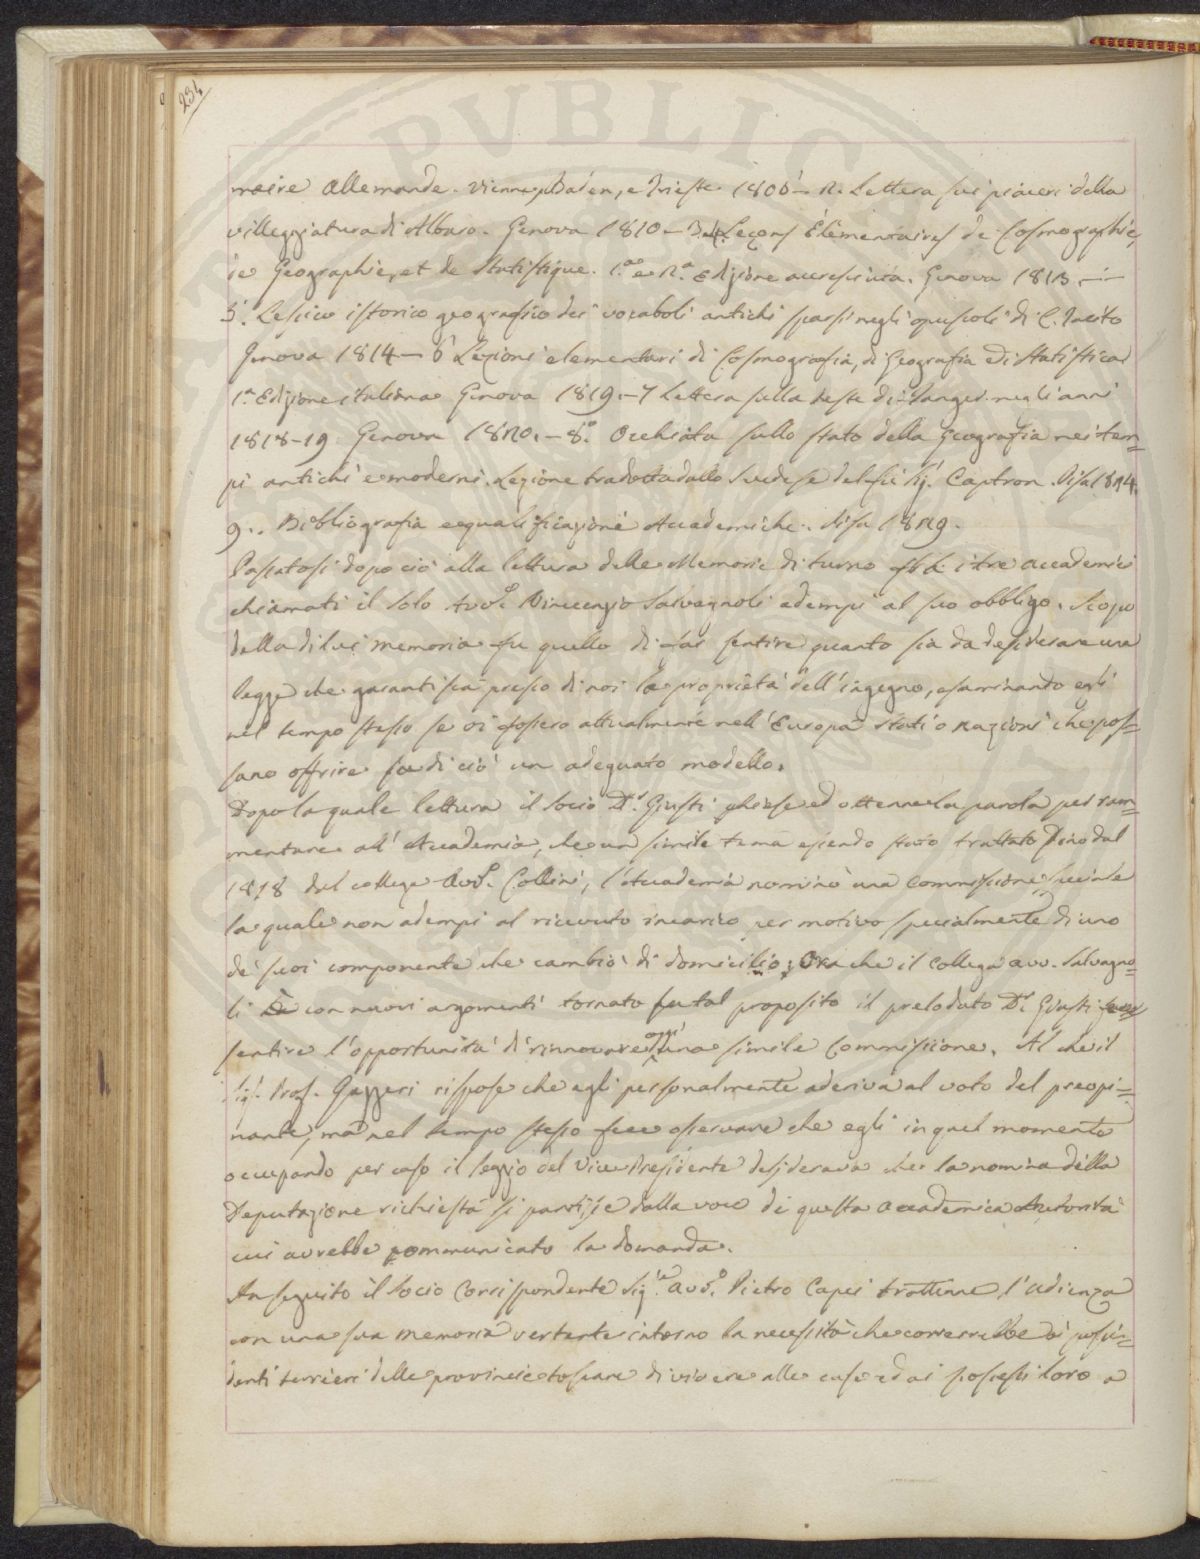 234
maire Allemande. Vienne, Baden, e Trieste 1806 – 2. Lettera sui piaceri della
villeggiatura di Albaro. Genova 1810 – Leçons Élémentaires de Cosmographie,
de Geographie, et de Statistique. 1.ª e 2.ª Edizione accresciuta. Genova 1813. –
5. Lessico istorico geografico dei vocaboli antichi sparsi negli opuscoli di C. Tacito
Genova 1814 – 6 Lezioni elementari di Cosmografia, di Geografia e di Statistica
1.ª Edizione italiana Genova 1819. – 7 Lettera sulla peste di Tanger negli anni
1818-19 Genova 1820. – 8.º Occhiata sullo stato della Geografia nei tem=
pi antichi e moderni. Lezione tradotta dallo Svedese del fu Sig. Captron. Pisa 1824.
9.. Bibliografia e qualificazioni Accademiche. Pisa 1829.
Passatosi dopo ciò alla lettura delle Memorie di turno i tre accademici
chiamati il solo Avv.º Vincenzio Salvagnoli adempì al suo obbligo. Scopo
della di lui memoria fu quello di far sentire quanto sia da desiderare una
legge che garantisca presso di noi la proprietà dell'ingegno, esaminando egli
nel tempo stesso se vi fossero attualmente nell'Europa Stati o nazioni che pos=
sano offrire su di ciò un adeguato modello.
Dopo la quale lettura il socio D.r Giusti chiese ed ottenne la parola per ram=
mentare all'Accademia, che un simile tema essendo stato trattato fino dal
1828 dal collega Avv.º Collini, l'Accademia nominò una Commissione speciale
la quale non adempì al ricevuto incarico per motivo specialmente di uno
de' suoi componente che cambiò di domicilio; Ora che il Collega avv. Salvagno=
li è con nuovi argomenti tornato su tal proposito il prelodato D.r Giusti fece
sentire l'opportunità di rinnovare oggi una simile Commissione. Al che il
Sig.r Prof. Gazzeri rispose che egli personalmente aderiva al voto del preopi=
nante, ma nel tempo stesso fece osservare che egli in quel momento
occupando per caso il seggio del Vice Presidente desiderava che la nomina della
Deputazione richiesta si partisse dalla voce di questa accademica Autorità
cui avrebbe communicato la domanda.
In seguito il Socio Corrispondente Sig.re Avv.º Pietro Capei trattenne l'udienza
con una sua memoria vertente intorno la necessità che correrebbe ai possi=
denti terrieri delle provincie toscane di vivere alle case ed ai possessi loro a